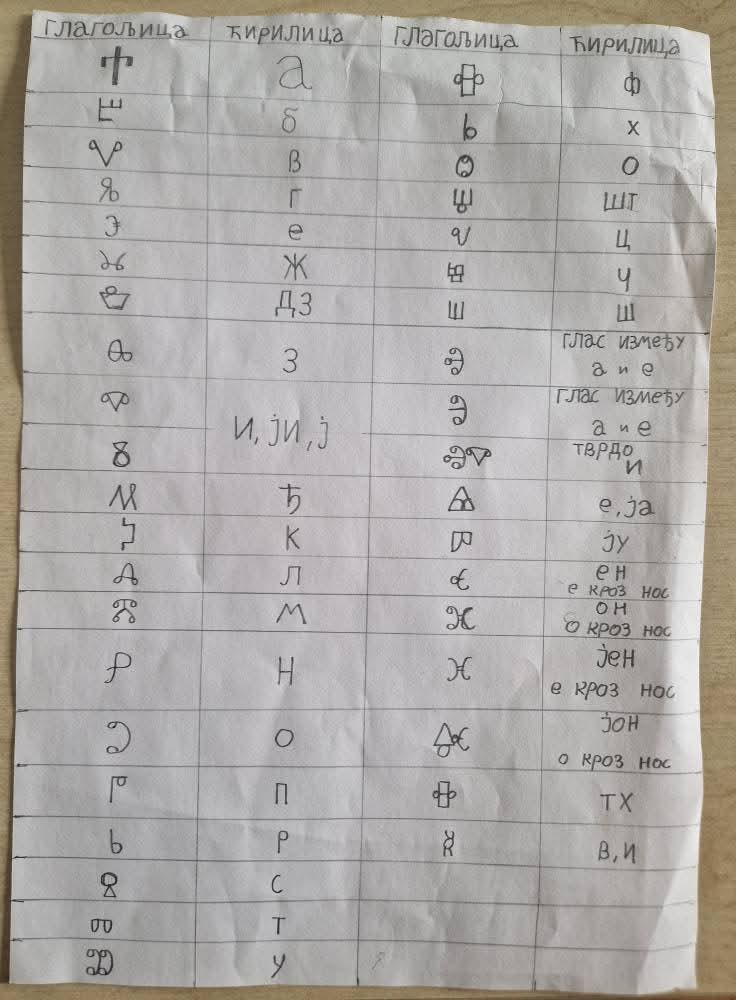 глагољица ћирилица глагољица ћирилица
Ⰰ а Ⱇ ф
Ⰱ б Ⱈ х
Ⰲ в Ⱉ о
Ⰳ г Ⱋ шт
Ⰵ е Ⱌ ц
Ⰶ ж Ⱍ ч
Ⰷ дз Ⱎ ш
Ⰸ з Ⱏ глас између
а и е
Ⰹ и, ји, ј Ⱐ глас између
а и е
Ⰻ ⰟⰊ тврдо
и
Ⰼ ђ Ⱑ е, ја
Ⰽ к Ⱓ ју
Ⰾ л Ⱔ ен
е кроз нос
Ⰿ м Ⱘ он
о кроз нос
Ⱀ н Ⱗ јен
е кроз нос
Ⱁ о Ⱙ јон
о кроз нос
Ⱂ п Ⱚ тх
Ⱃ р Ⱛ в, и
Ⱄ с
Ⱅ т
Ⱆ у